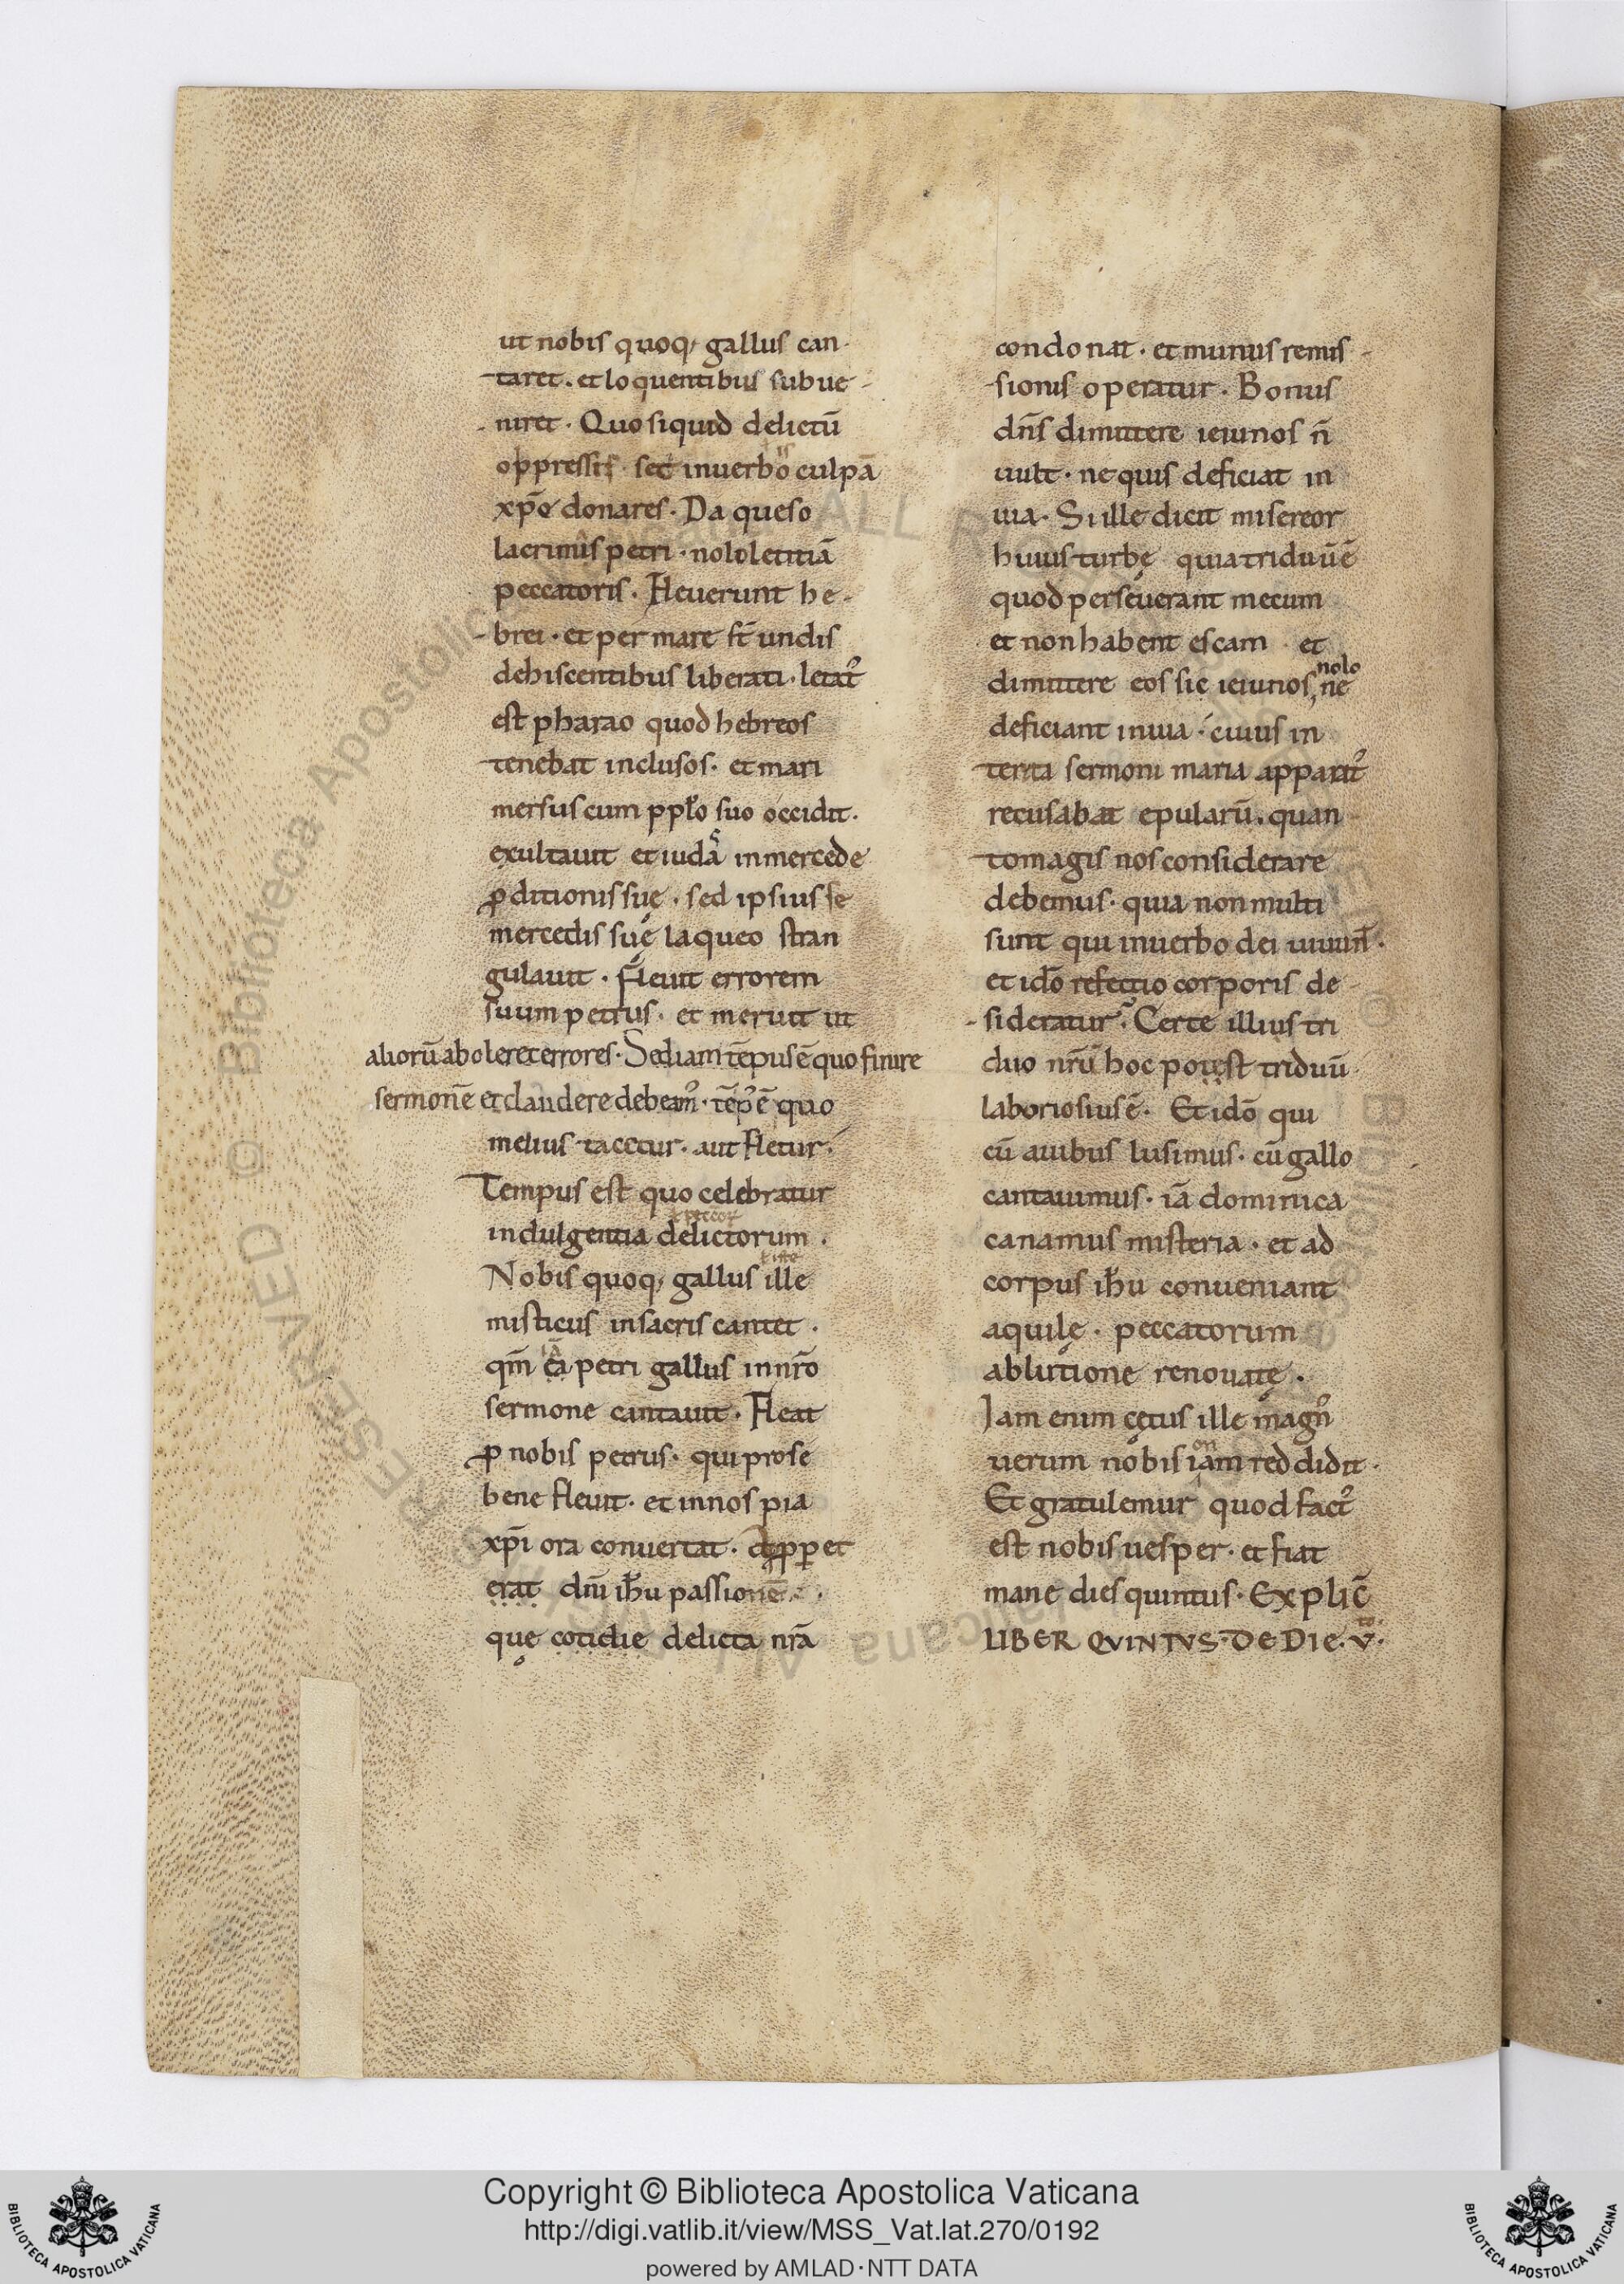 ut nobis quoq; gallus can-
taret. et loquentibus subue-
niret. Quo siquid delictū
oppressit sec inuerbo culpā
xp̄e donares. Da queso
lacrimis petri. nolo letitiā
peccatoris. Fleuerunt he-
brei. et per mare fr̄ undis
dehiscentibus liberati. letat᷒
est pharao quod hebreos
tenebat inclusos. et mari
mersus cum pp̄lo suo occidit.
exultauit et iudas in mercede
ꝓditionis suę. sed ipsius se
mercedis suę laqueo stran
gulauit. Fleuit errorem
suum petrus. et meruit ut
aliorū aboleret errores. Sed iam tēpus ē quo finire
sermonē et claudere debeam᷒. tēp᷒ ē quo
melius tacetur. aut fletur.
Tempus est quo celebratur
ł peccoꝝ
indulgentia delictorum.
ł iste
Nobis quoq; gallus ille
misticus in sacris cantet.
iā
qm̄ eī petri gallus in nr̄o
sermone cantauit. Fleat
ꝓ nobis petrus. qui pro se
bene fleuit. et in nos pia
xp̄i ora conuertat. et ꝓꝑet
erat dn̄i ih̄u passio
quę cotidie delicta nr̄a
condonat. et munus remis-
sionis operatur. Bonus
dn̄s dimittere ieiunos n̄
uult. ne quis deficiat in
uia. Si ille dicit misereor
huius turbę quia triduū ē
quod perseuerant mecum
et non habent escam et
nolo
dimittere eos sic ieiunos, ne
deficiant in uia. cuius in
tenta sermoni maria apparat᷒
recusabat epularū. quan
to magis nos considerare
debemus. quia non multi
sunt qui in uerbo dei uiuun̄t.
et idō refectio corporis de
-sideratur. Certe illius tri
duo nr̄ū hoc potest triduū
laboriosius ē. Et idō qui
cū auibus lusimus. cū gallo
cantauimus. iā dominica
canamus misteria. et ad
corpus ih̄u conueniant
aquilę. peccatorum
ablutione renouatę.
Iam enim cętus ille magn᷒
on
uerum nobis iam reddidit.
Et gratulemur quod fact᷒
est nobis uesper. et fiat
mane dies quintus. Explic̄
to
LIBER QVINTVS. DE DIE. V.
Copyright © Biblioteca Apostolica Vaticana
http://digi.vatlib.it/view/MSS_Vat.lat.270/0192
powered by AMLAD·NTT DATA
BIBLIOTECA APOSTOLICA VATICANA
BIBLIOTECA APOSTOLICA VATICANA